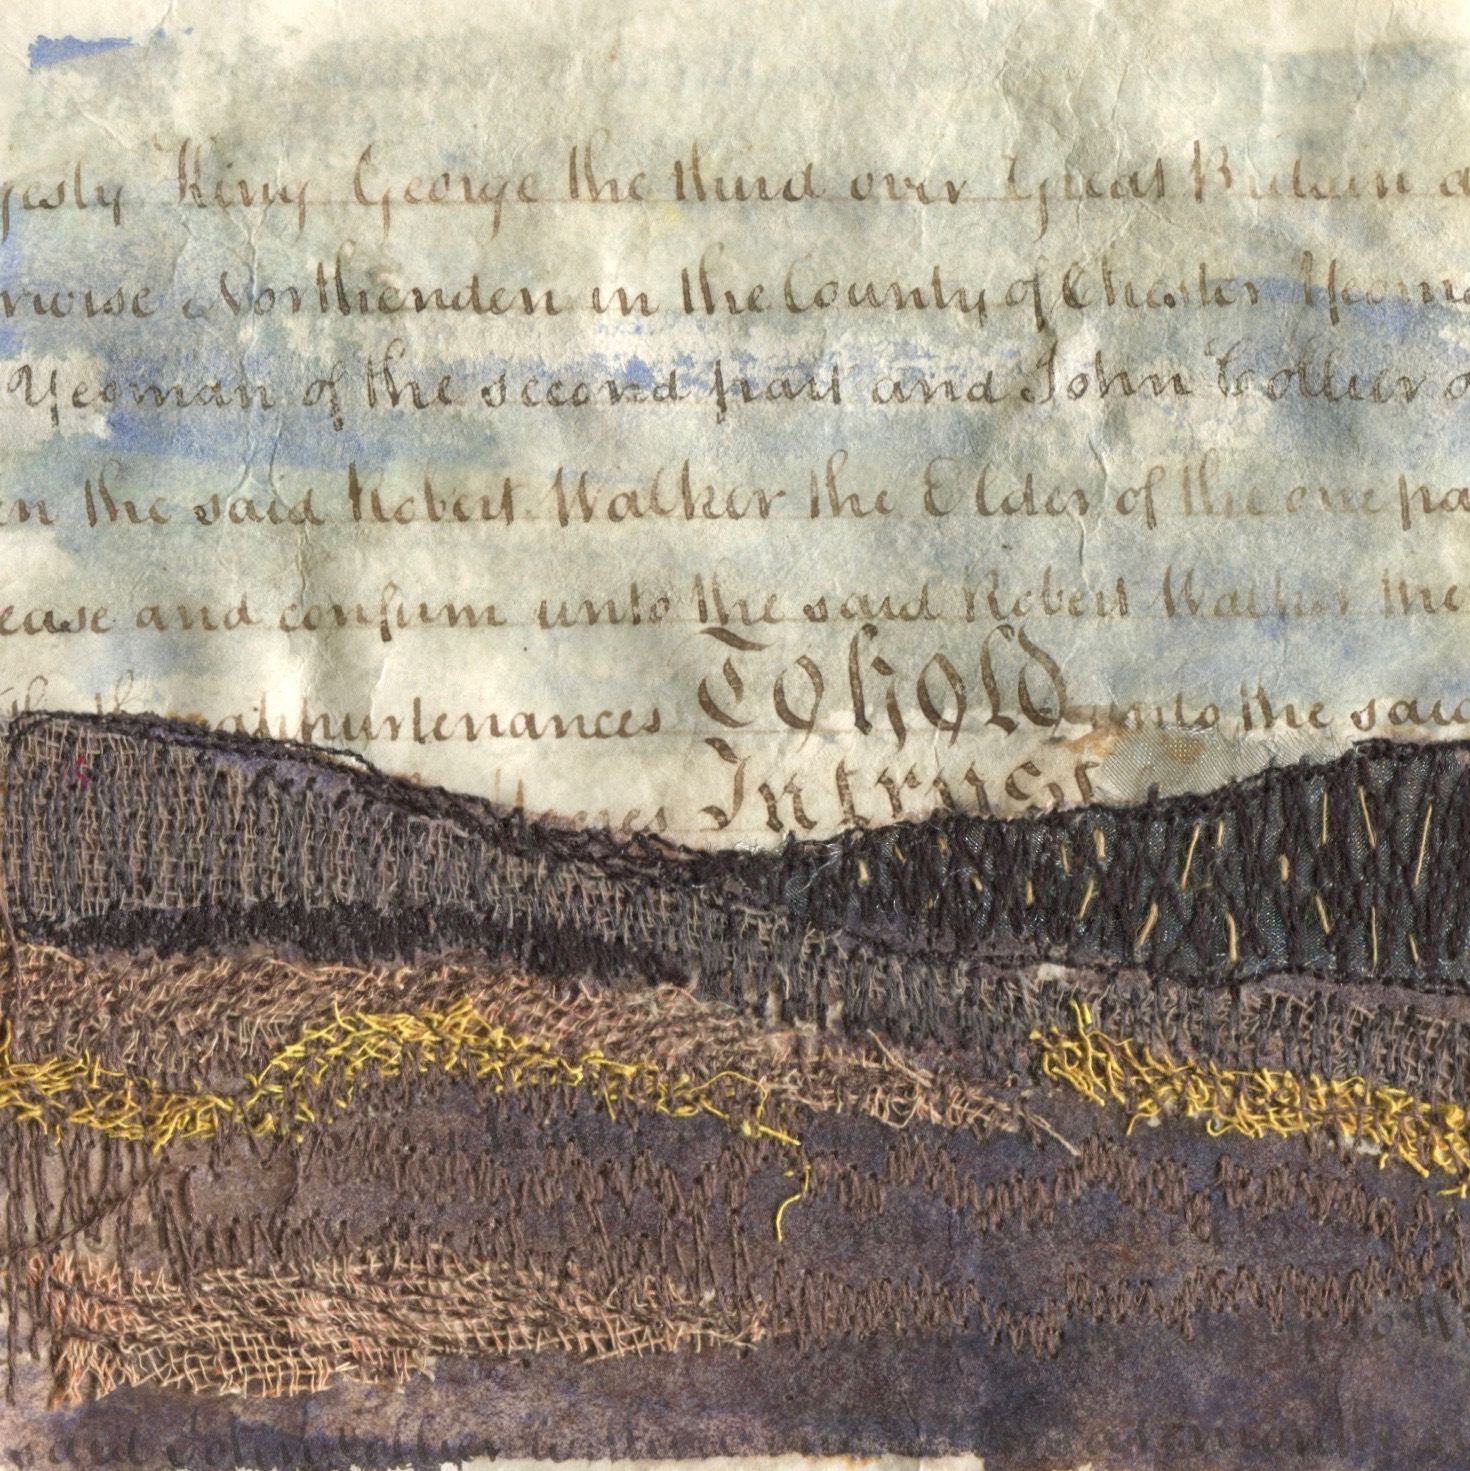 King George the third over Great Britain
Northenden in the County of Chester
Yeoman of the second part and John Collier
the said Robert Walker the Elder of the one
and confirm unto the said Robert Walker the
appurtenances To hold unto the said
In trust